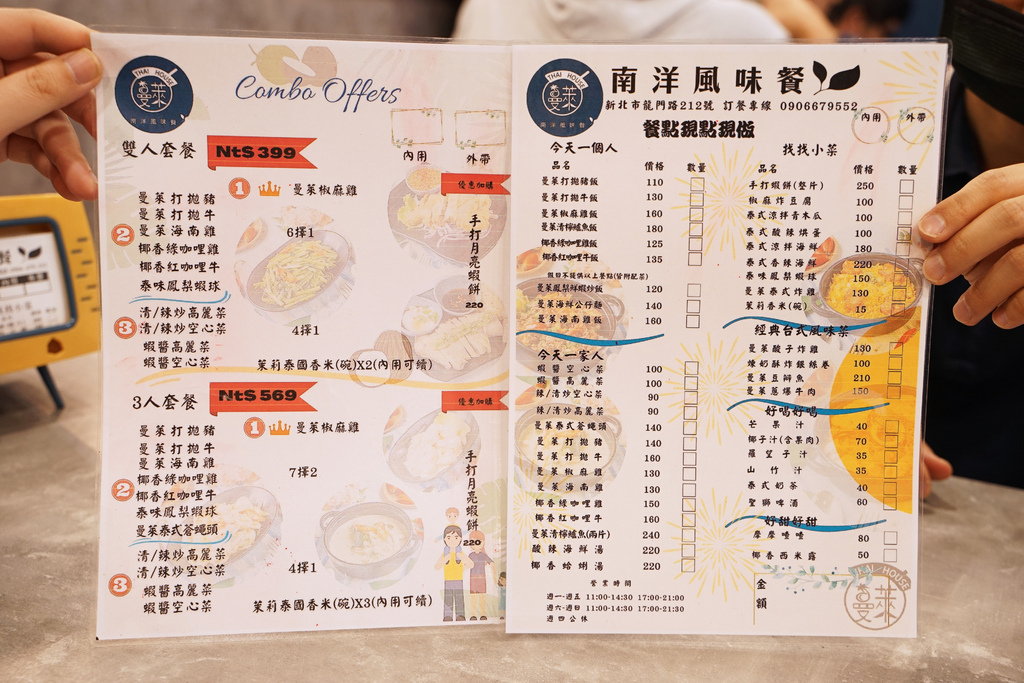 THAI HOUSE
曼萊
南洋風味餐
Combo Offers
內用 外帶
雙人套餐 Nt$ 399
優惠加購
手打月亮蝦餅
220
1 曼萊椒麻雞
曼萊打拋豬
曼萊打拋牛
2 曼萊海南雞 6擇1
椰香綠咖哩雞
椰香紅咖哩牛
泰味鳳梨蝦球
清/辣炒高麗菜
3 清/辣炒空心菜 4擇1
蝦醬高麗菜
蝦醬空心菜
茉莉泰國香米(碗)X2(內用可續)
3人套餐 Nt$ 569
優惠加購
手打月亮蝦餅
220
1 曼萊椒麻雞
曼萊打拋豬
曼萊打拋牛
曼萊海南雞 7擇2
椰香綠咖哩雞
2 椰香紅咖哩牛
泰味鳳梨蝦球
曼萊泰式蒼蠅頭
清/辣炒高麗菜
清/辣炒空心菜 4擇1
3 蝦醬高麗菜
蝦醬空心菜
茉莉泰國香米(碗)X3(內用可續)
THAI HOUSE
曼萊
南洋風味餐
南洋風味餐
新北市龍門路212號 訂餐專線 0906679552
餐點現點現做
內用 外帶
今天一個人
品名 價格 數量
曼萊打拋豬飯 110
曼萊打拋牛飯 130
曼萊椒麻雞飯 160
曼萊清檸鱸魚飯 180
椰香綠咖哩雞飯 125
椰香紅咖哩牛飯 135
假日不提供以上餐點(皆附配菜)
曼萊鳳梨鮮蝦炒飯 120
曼萊海鮮公仔麵 140
曼萊海南雞飯 160
今天一家人
蝦醬空心菜 100
蝦醬高麗菜 100
辣/清炒空心菜 90
辣/清炒高麗菜 90
曼萊泰式蒼蠅頭 140
曼萊打拋豬 140
曼萊打拋牛 160
曼萊椒麻雞 130
曼萊海南雞 130
椰香綠咖哩雞 150
椰香紅咖哩牛 160
曼萊清檸鱸魚(兩片) 240
酸辣海鮮湯 220
椰香蛤蜊湯 220
營業時間
週一-週五 11:00-14:30 17:00-21:00
週六-週日 11:00-14:30 17:00-21:30
週四公休
找找小菜
品名 價格 數量
手打蝦餅(整片) 250
椒麻炸豆腐 100
泰式涼拌青木瓜 100
泰式酸辣烘蛋 100
泰式涼拌海鮮 180
泰式香辣海鮮 220
泰味鳳梨蝦球 150
曼萊泰式炸雞 130
茉莉香米(碗) 15
經典台式風味菜
曼萊酸子炸雞 130
煉奶酥炸銀絲卷 100
曼萊豆瓣魚 210
曼萊蔥爆牛肉 150
好喝好喝
芒果汁 40
椰子汁(含果肉) 70
羅望子汁 35
山竹汁 35
泰式奶茶 40
聖獅啤酒 60
好甜好甜
摩摩喳喳 80
椰香西米露 50
金額
THAI HOUSE
曼萊